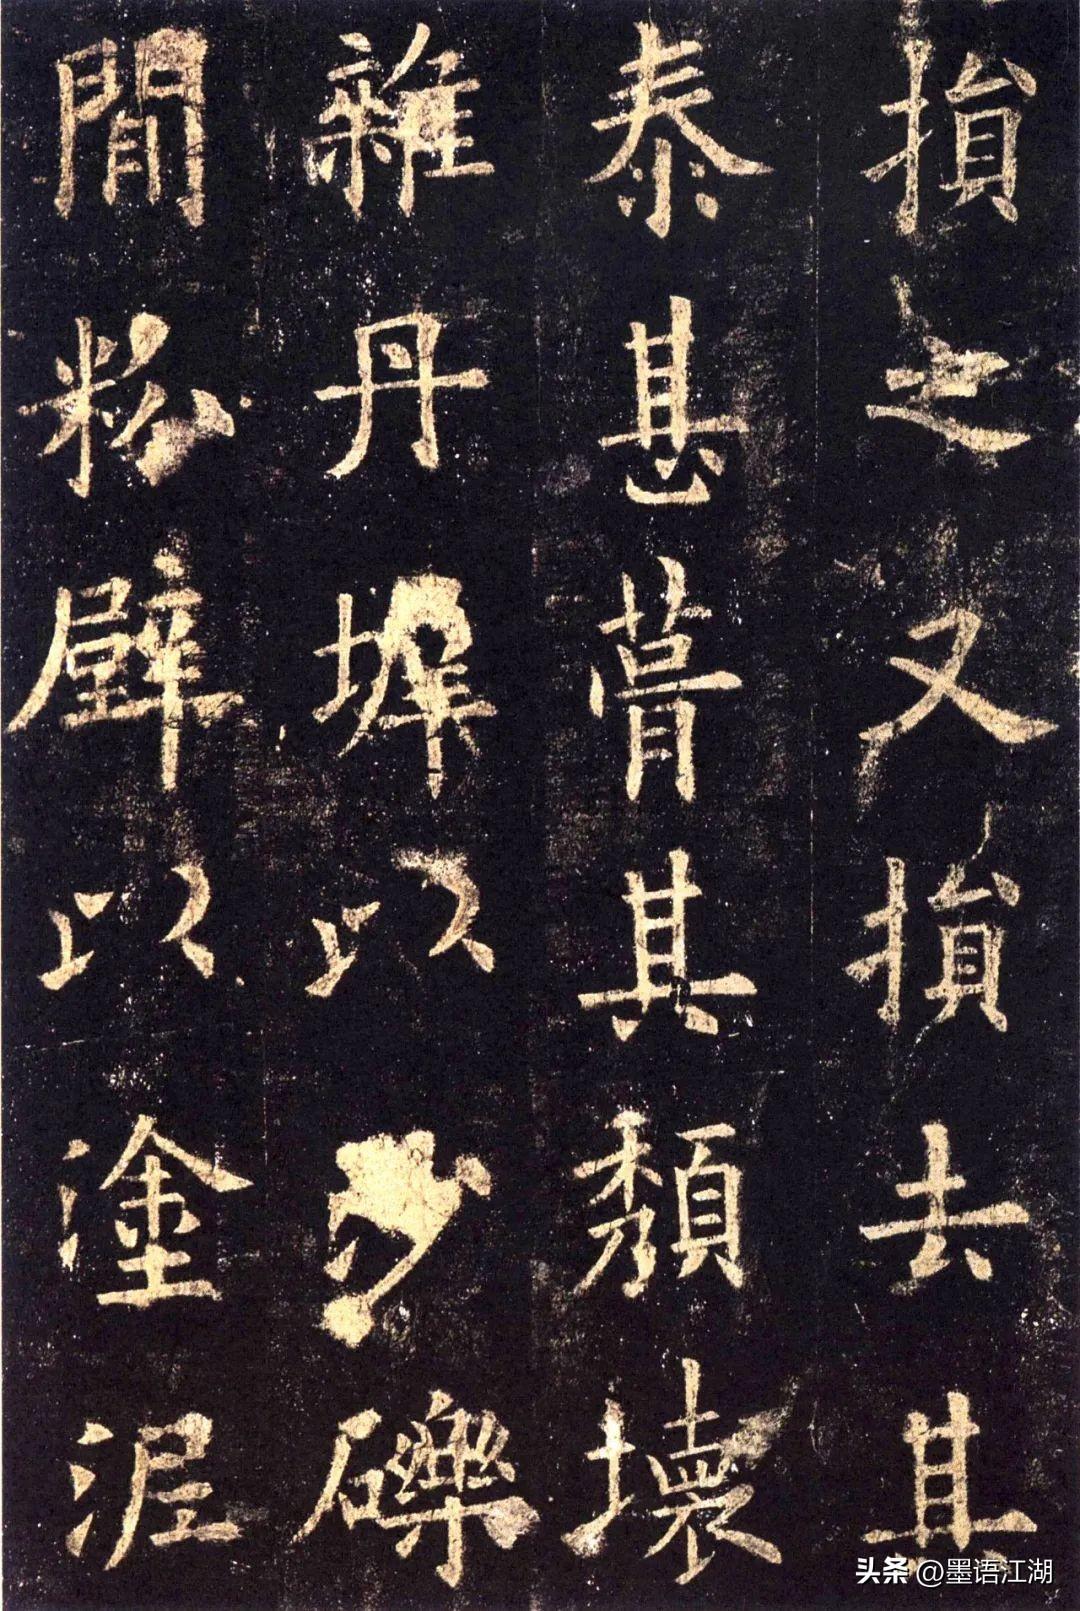 損之又損去其
泰甚葺其頹壞
雜丹墀以沙礫
間粉壁以塗泥
头条 @墨语江湖